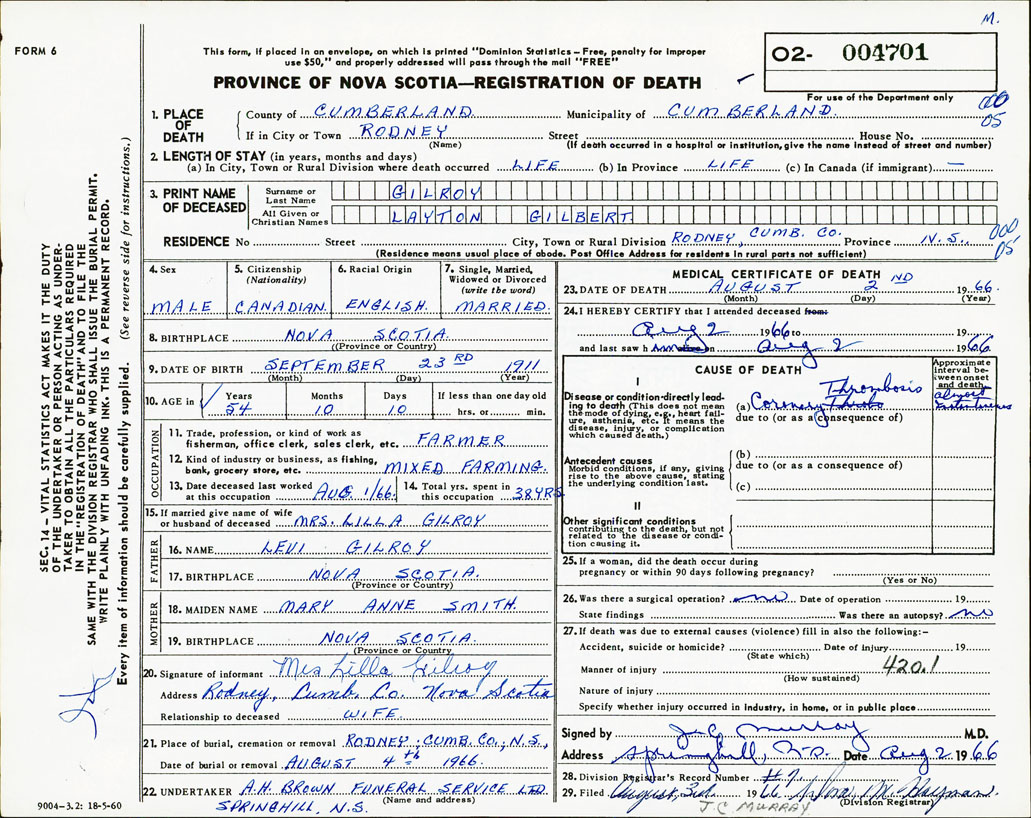 M.
FORM 6
This form, if placed in an envelope, on which is printed "Dominion Statistics – Free, penalty for improper
use $50," and properly addressed will pass through the mail "FREE"
O2- 004701
PROVINCE OF NOVA SCOTIA—REGISTRATION OF DEATH
For use of the Department only
1. PLACE OF DEATH
County of CUMBERLAND. Municipality of CUMBERLAND.
000
05
If in City or Town RODNEY Street House No.
(Name) (If death occurred in a hospital or institution, give the name instead of street and number)
2. LENGTH OF STAY (in years, months and days)
(a) In City, Town or Rural Division where death occurred LIFE (b) In Province LIFE (c) In Canada (if immigrant) —
3. PRINT NAME OF DECEASED
Surname or Last Name GILROY
All Given or Christian Names LAYTON GILBERT
RESIDENCE No Street City, Town or Rural Division RODNEY, CUMB. CO. Province N.S.
000
05
(Residence means usual place of abode. Post Office Address for residents in rural parts not sufficient)
4. Sex
MALE
5. Citizenship
(Nationality)
CANADIAN.
6. Racial Origin
ENGLISH.
7. Single, Married, Widowed or Divorced
(write the word)
MARRIED.
8. BIRTHPLACE NOVA SCOTIA.
(Province or Country)
9. DATE OF BIRTH SEPTEMBER 23 RD 1911
(Month) (Day) (Year)
10. AGE in Years Months Days If less than one day old
54 10 10 hrs. or min.
OCCUPATION
11. Trade, profession, or kind of work as
fisherman, office clerk, sales clerk, etc. FARMER
12. Kind of industry or business, as fishing,
bank, grocery store, etc. MIXED FARMING.
13. Date deceased last worked
at this occupation AUG 1/66.
14. Total yrs. spent in
this occupation 38 YRS
15. If married give name of wife
or husband of deceased MRS. LILLA GILROY
FATHER
16. NAME LEVI GILROY
17. BIRTHPLACE NOVA SCOTIA.
(Province or Country)
MOTHER
18. MAIDEN NAME MARY ANNE SMITH.
19. BIRTHPLACE NOVA SCOTIA.
(Province or Country
20. Signature of informant Mrs Lilla Gilroy
Address Rodney, Cumb. Co. Nova Scotia
Relationship to deceased WIFE.
21. Place of burial, cremation or removal RODNEY, CUMB. CO., N.S.,
Date of burial or removal AUGUST 4th 1966.
22. UNDERTAKER A.H. BROWN FUNERAL SERVICE LTD.
(Name and address)
SPRINGHILL, N.S.
MEDICAL CERTIFICATE OF DEATH
23. DATE OF DEATH AUGUST 2 ND 1966.
(Month) (Day) (Year)
24. I HEREBY CERTIFY that I attended deceased from:
Aug 2 1966 to 19
and last saw h on Aug 2 1966
CAUSE OF DEATH
Approximate
interval between onset
and death
I
Disease or condition directly leading to death (This does not mean
the mode of dying, e.g., heart failure, asthenia, etc. It means the
disease, injury, or complication
which caused death.)
(a) Coronary Thrombosis
almost
due to (or as a consequence of)
Antecedent causes
Morbid conditions, if any, giving
rise to the above cause, stating
the underlying condition last.
(b)
due to (or as a consequence of)
(c)
II
Other significant conditions
contributing to the death, but not
related to the disease or condition causing it.
25. If a woman, did the death occur during
pregnancy or within 90 days following pregnancy?
(Yes or No)
26. Was there a surgical operation? no Date of operation 19
State findings Was there an autopsy? no
27. If death was due to external causes (violence) fill in also the following:–
Accident, suicide or homicide? Date of injury 19
(State which)
Manner of injury 420.1
(How sustained)
Nature of injury
Specify whether injury occurred in industry, in home, or in public place
Signed by J.C. Murray M.D.
Address Springhill, N.S. Date Aug 2 1966
28. Division Registrar's Record Number #7.
29. Filed August, 3rd 1966
(Division Registrar)
J.C. MURRAY
SEC. 14 – VITAL STATISTICS ACT MAKES IT THE DUTY
OF THE UNDERTAKER OR PERSON ACTING AS UNDERTAKER TO OBTAIN ALL THE PARTICULARS REQUIRED
IN THE "REGISTRATION OF DEATH" AND TO FILE THE
SAME WITH THE DIVISION REGISTRAR WHO SHALL ISSUE THE BURIAL PERMIT.
WRITE PLAINLY WITH UNFADING INK. THIS IS A PERMANENT RECORD.
Every item of information should be carefully supplied. (See reverse side for instructions.)
9004-3.2: 18-5-60